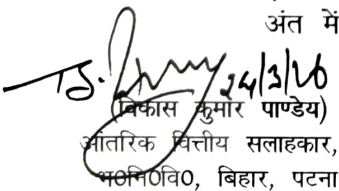 अंत में
24/3/26
(विकास कुमार पाण्डेय)
आंतरिक वित्तीय सलाहकार,
भ0नि0वि0, बिहार, पटना